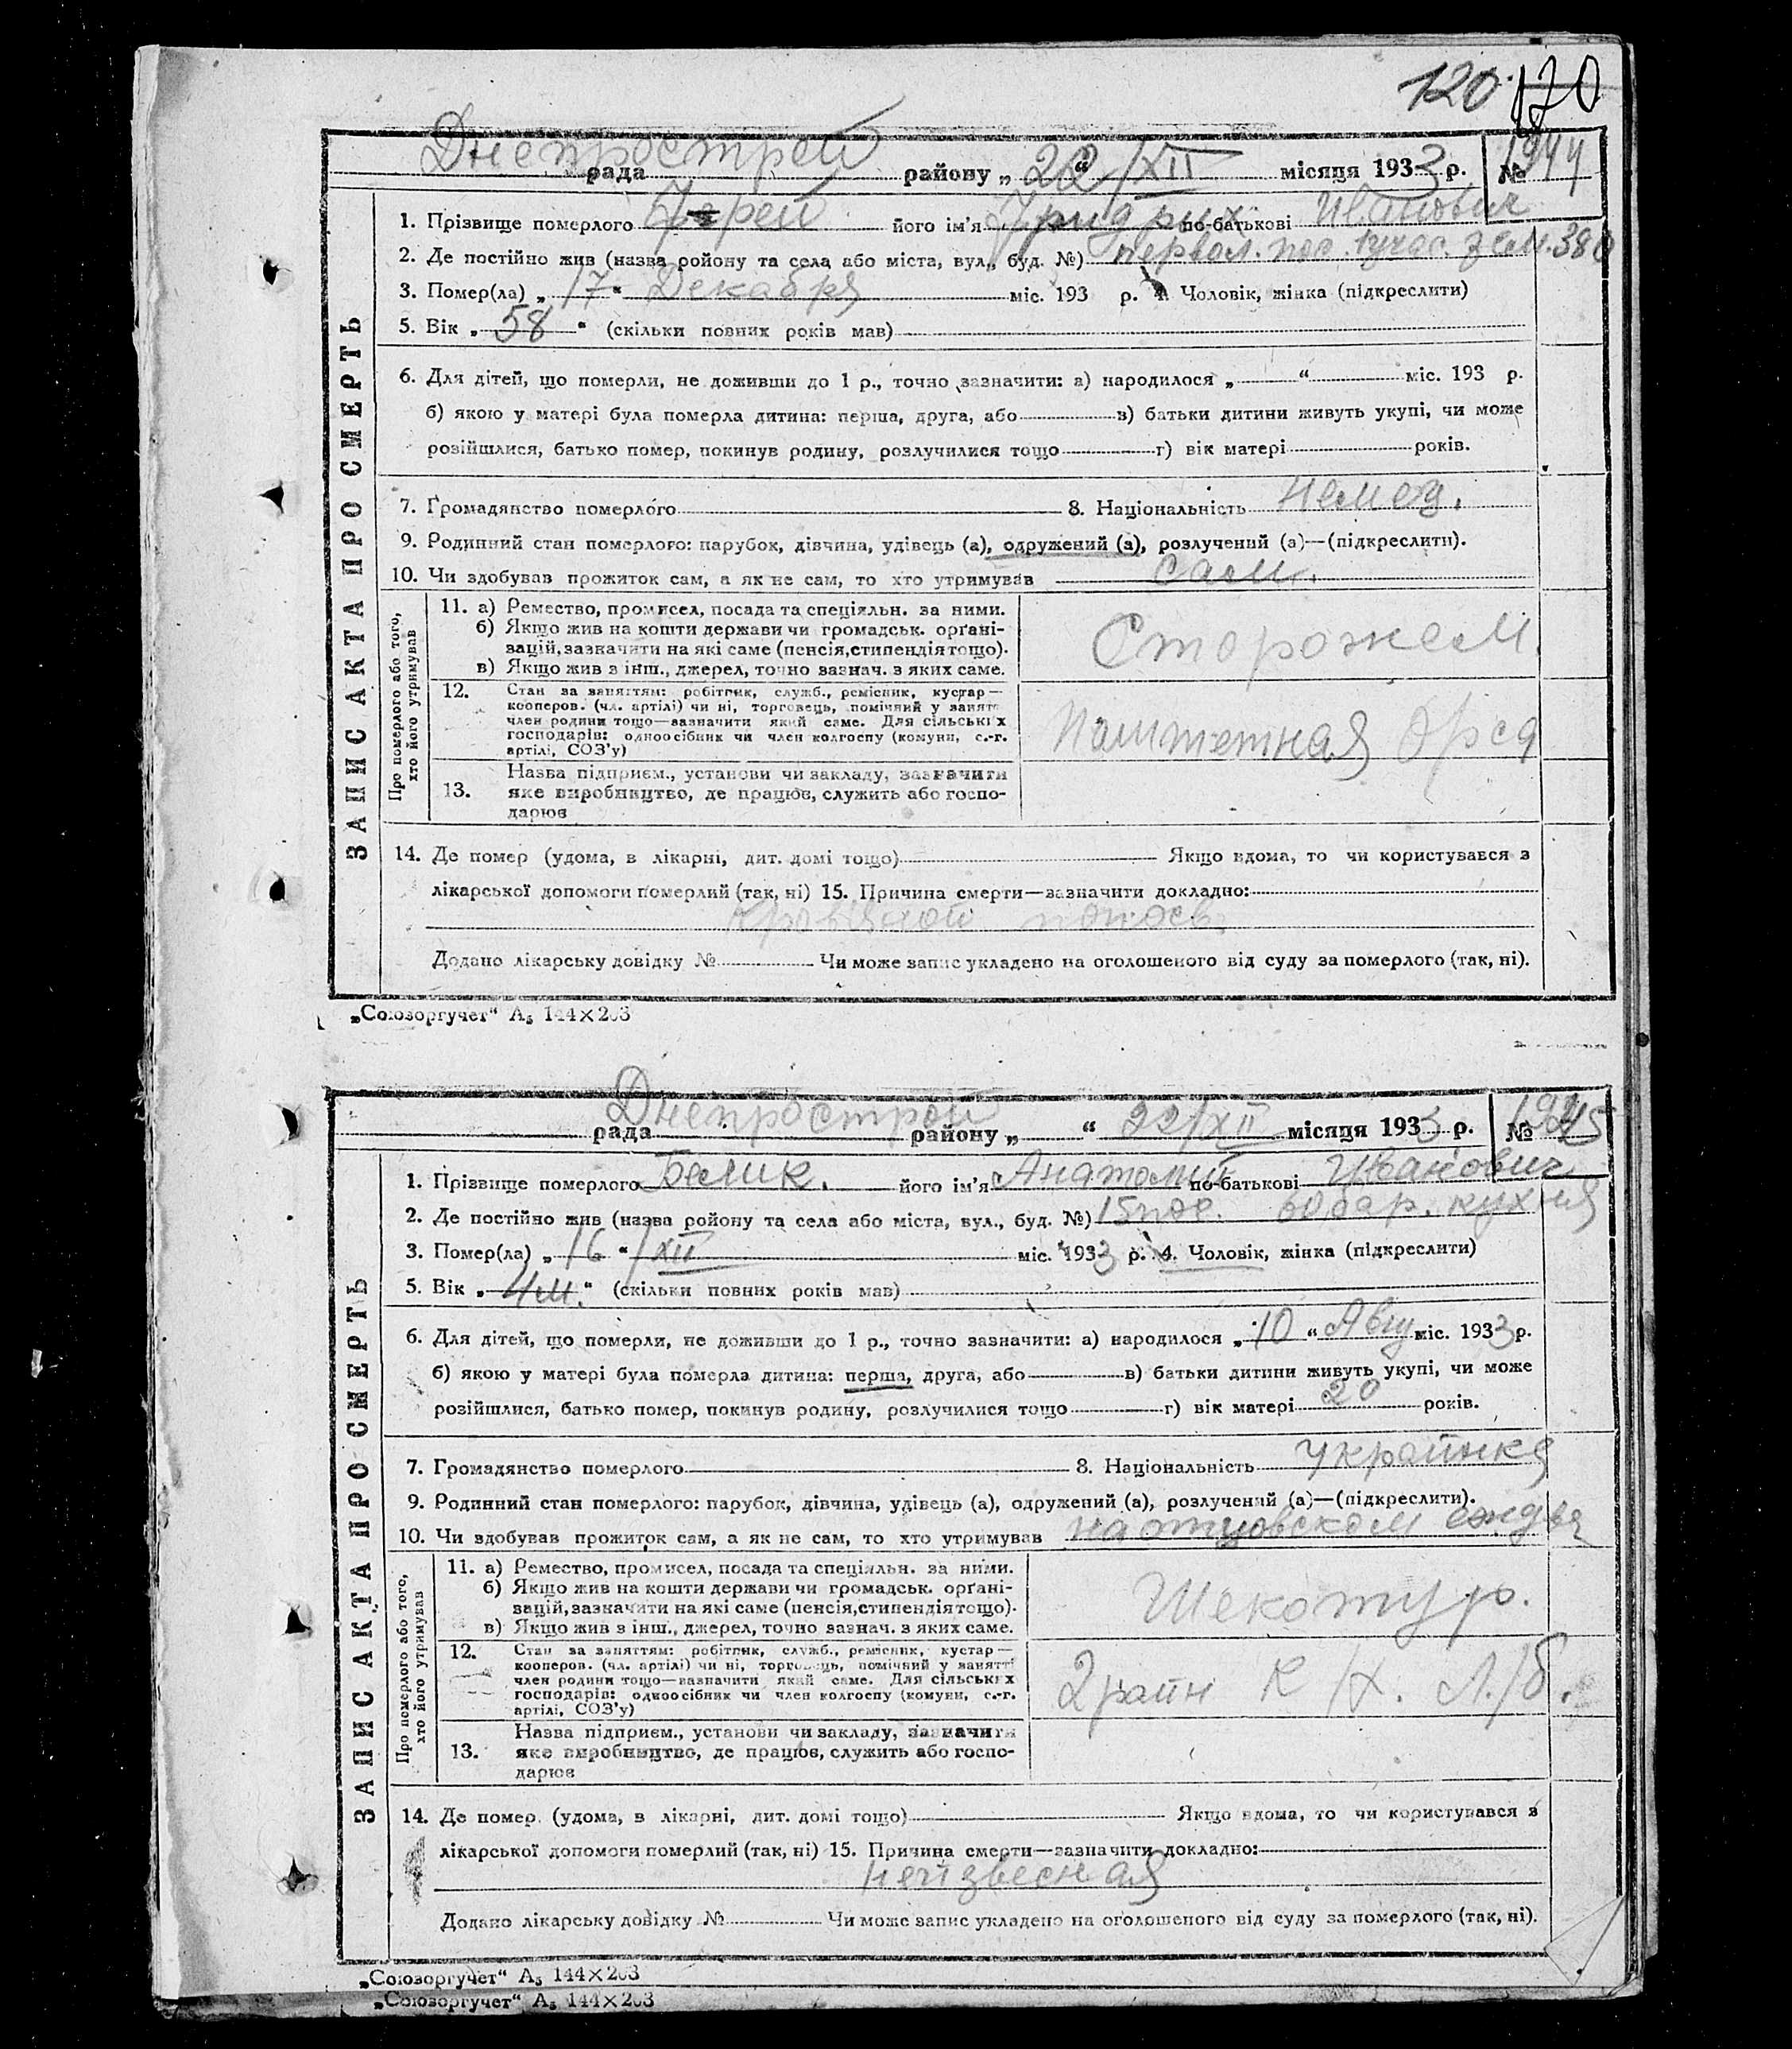 120 120
Днепрострой
рада района „22“ /XII місяця 1933 р. № 1944
1. Прізвище померлого його ім'я по-батькові Иванович
2. Де постійно жив (назва ройону та села або міста, вул., буд. №) первом. пос. 1 учас. зем. 380
3. Помер(ла) „17“ Декабря міс. 193 р. 4. Чоловік, жінка (підкреслити)
5. Вік „58“ (скільки повних років мав)
6. Для дітей, що померли, не доживши до 1 р., точно зазначити: а) народилося „ “ міс. 193 р.
б) якою у матері була померла дитина: перша, друга, або в) батьки дитини живуть укупі, чи може
розійшлися, батько помер, покинув родину, розлучилися тощо г) вік матері років.
7. Громадянство померлого 8. Національність немец.
9. Родинний стан померлого: парубок, дівчина, удівець (а), одружений (а), розлучений (а)—(підкреслити).
10. Чи здобував прожиток сам, а як не сам, то хто утримував сам.
ЗАПИС АКТА ПРО СМЕРТЬ
Про померлого або того, хто його утримував
11. а) Ремество, промисел, посада та спеціяльн. за ними.
б) Якщо жив на кошти держави чи громадськ. орґані-
зацій, зазначити на які саме (пенсія, стипендія тощо).
в) Якщо жив з інш., джерел, точно зазнач. з яких саме.
Сторожем.
12. Стан за заняттям: робітник, служб., ремісник, кустар—
кооперов. (чл. артілі) чи ні, торговець, помічний у занятт
член родини тощо—зазначити який саме. Для сільських
господарів: одноосібник чи член колгоспу (комуни, с.-г.
артілі, СОЗ'у)
13. Назва підприєм., установи чи закладу, зазначити
яке виробництво, де працює, служить або госпо-
дарює
14. Де помер (удома, в лікарні, дит. домі тощо) Якщо вдома, то чи користувався з
лікарської допомоги померлий (так, ні) 15. Причина смерти—зазначити докладно:
кровяной понос.
Додано лікарську довідку № Чи може запис укладено на оголошеного від суду за померлого (так, ні).
„Союзоргучет“ А₅ 144×203
Днепрострой
рада району „ “ 22/XII місяця 1933 р. № 1945
1. Прізвище померлого Белик. його ім'я Анатолий по-батькові Иванович
2. Де постійно жив (назва ройону та села або міста, вул., буд. №) 15 пос. 60 бар. кухня
3. Помер(ла) „16“ /XII міс. 1933 р. 4. Чоловік, жінка (підкреслити)
5. Вік „4м.“ (скільки повних років мав)
6. Для дітей, що померли, не доживши до 1 р., точно зазначити: а) народилося „10“ Авгу міс. 1933 р.
б) якою у матері була померла дитина: перша, друга, або в) батьки дитини живуть укупі, чи може
розійшлися, батько помер, покинув родину, розлучилися тощо г) вік матері 20 років.
7. Громадянство померлого 8. Національність украинка
9. Родинний стан померлого: парубок, дівчина, удівець (а), одружений (а), розлучений (а)—(підкреслити).
10. Чи здобував прожиток сам, а як не сам, то хто утримував на отцовском
ЗАПИС АКТА ПРО СМЕРТЬ
Про померлого або того, хто його утримував
11. а) Ремество, промисел, посада та спеціяльн. за ними.
б) Якщо жив на кошти держави чи громадськ. орґані-
зацій, зазначити на які саме (пенсія, стипендія тощо).
в) Якщо жив з інш., джерел, точно зазнач. з яких саме.
Шекотур.
12. Стан за заняттям: робітник, служб., ремісник, кустар—
кооперов. (чл. артілі) чи ні, торговець, помічний у занятті
член родини тощо—зазначити який саме. Для сільських
господарів: одноосібник чи член колгоспу (комуни, с.-г.
артілі, СОЗ'у)
2 район
13. Назва підприєм., установи чи закладу, зазначити
яке виробництво, де працює, служить або госпо-
дарює
14. Де помер (удома, в лікарні, дит. домі тощо) Якщо вдома, то чи користувався з
лікарської допомоги померлий (так, ні) 15. Причина смерти—зазначити докладно:
неизвесная
Додано лікарську довідку № Чи може запис укладено на оголошеного від суду за померлого (так, ні).
„Союзоргучет“ А₅ 144×203
„Союзоргучет“ А₅ 144×203